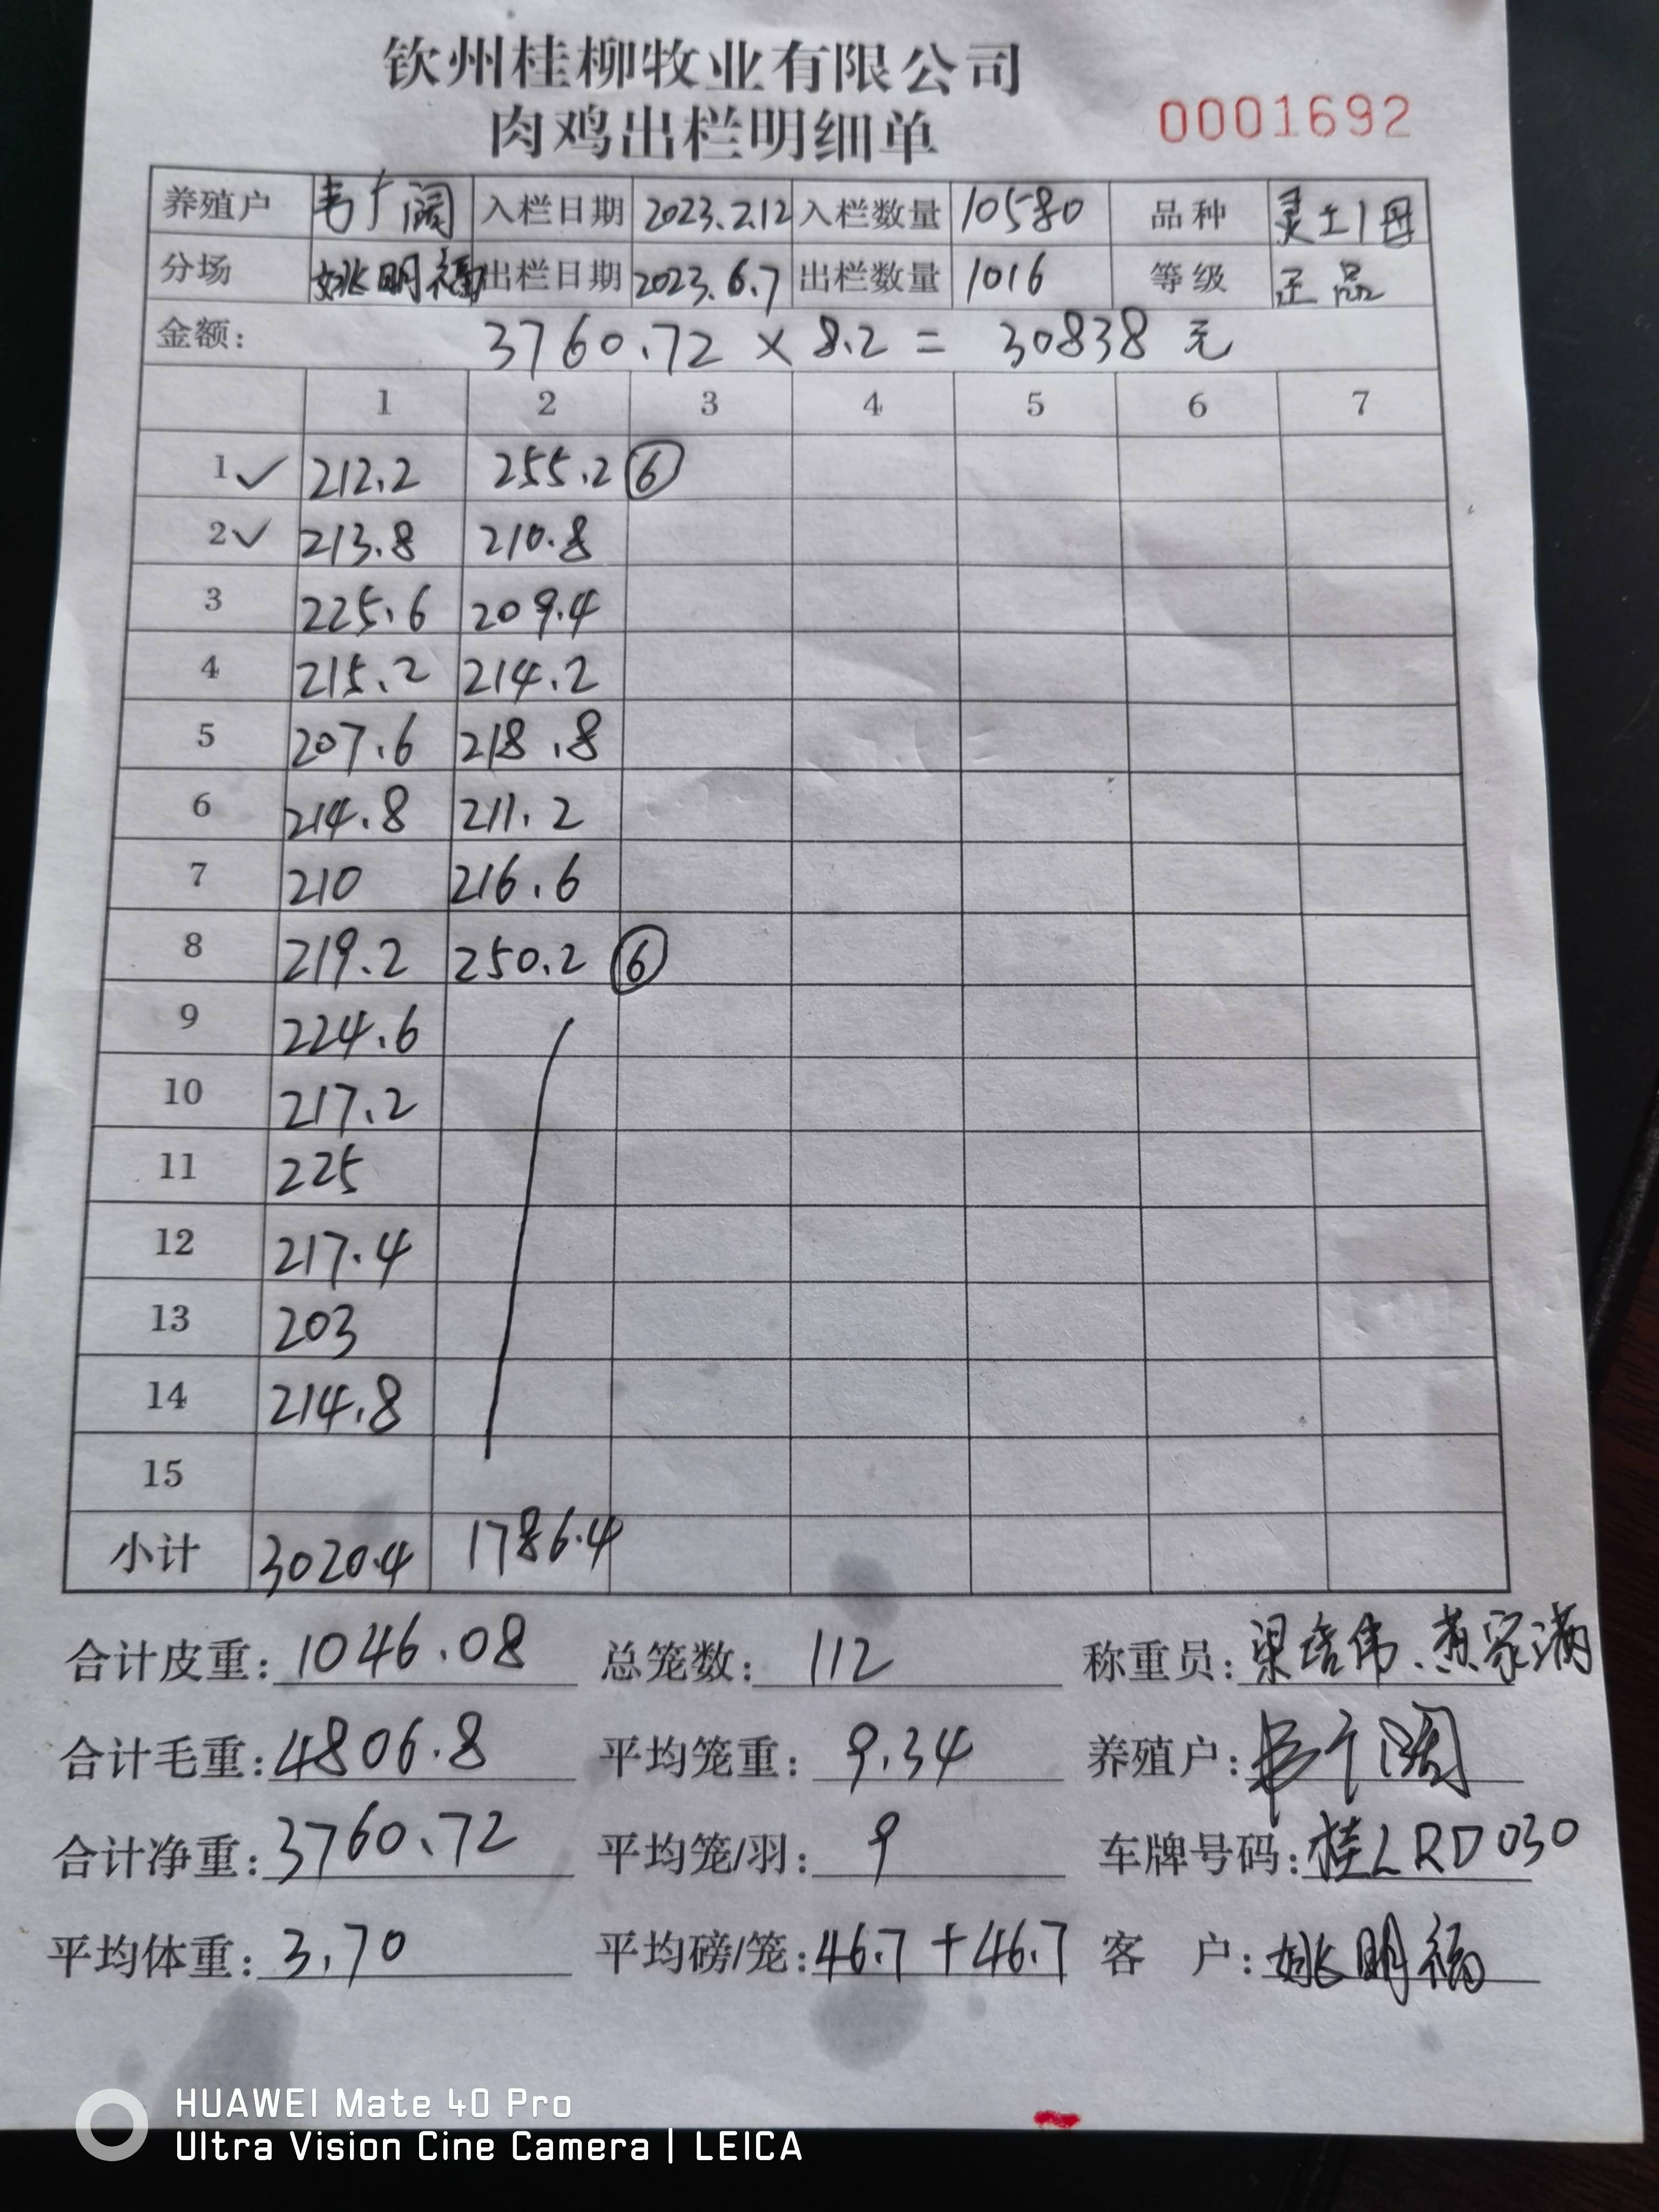 钦州桂柳牧业有限公司
肉鸡出栏明细单 0001692
养殖户 韦广阔 入栏日期 2023.2.12 入栏数量 10580 品种 灵土1号
分场 姚明福 出栏日期 2023.6.7 出栏数量 1016 等级 正品
金额: 3760.72 × 8.2 = 30838 元
1 2 3 4 5 6 7
1 ✓ 212.2 255.2 ⑥
2 ✓ 213.8 210.8
3 225.6 209.4
4 215.2 214.2
5 207.6 218.8
6 214.8 211.2
7 210 216.6
8 219.2 250.2 ⑥
9 224.6
10 217.2
11 225
12 217.4
13 203
14 214.8
15
小计 3020.4 1786.4
合计皮重: 1046.08 总笼数: 112 称重员: 梁培伟、黄家满
合计毛重: 4806.8 平均笼重: 9.34 养殖户: 韦广阔
合计净重: 3760.72 平均笼/羽: 9 车牌号码: 桂LRD030
平均体重: 3.70 平均磅/笼: 46.7+46.7 客 户: 姚明福
HUAWEI Mate 40 Pro
Ultra Vision Cine Camera | LEICA